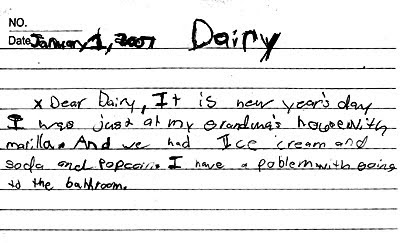 NO.
Dairy
Date January 1, 2007
x Dear Dairy, It is new year's day
I was just at my Grandma's house with
marilla. And we had Ice cream and
soda and Popcorn. I have a poblem with going
to the bathroom.